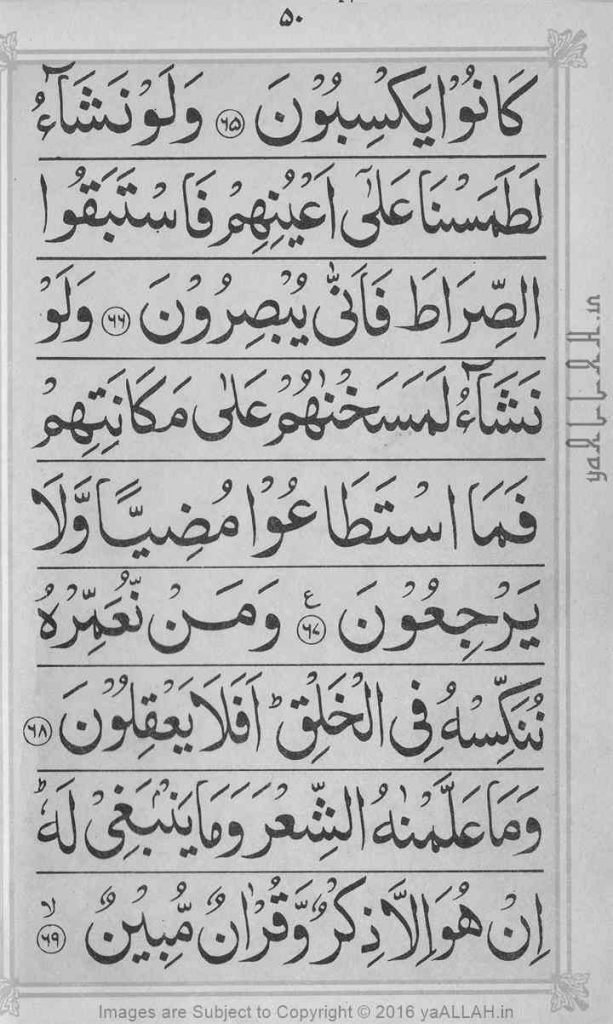 ۵۰
كَانُوْا يَكْسِبُوْنَ ﴿۶۵﴾ وَلَوْ نَشَآءُ
لَطَمَسْنَا عَلٰٓى اَعْيُنِهِمْ فَاسْتَبَقُوا
الصِّرَاطَ فَاَنّٰى يُبْصِرُوْنَ ﴿۶۶﴾ وَلَوْ
نَشَآءُ لَمَسَخْنٰهُمْ عَلٰى مَكَانَتِهِمْ
فَمَا اسْتَطَاعُوْا مُضِيًّا وَّلَا
يَرْجِعُوْنَ ﴿۶۷﴾ ع وَمَنْ نُّعَمِّرْهُ
نُنَكِّسْهُ فِى الْخَلْقِ ؕ اَفَلَا يَعْقِلُوْنَ ﴿۶۸﴾
وَمَا عَلَّمْنٰهُ الشِّعْرَ وَمَا يَنْۢبَغِىْ لَهٗ ؕ
اِنْ هُوَ اِلَّا ذِكْرٌ وَّقُرْاٰنٌ مُّبِيْنٌ ﴿۶۹﴾ ۙ
yaALLAH.in
Images are Subject to Copyright © 2016 yaALLAH.in